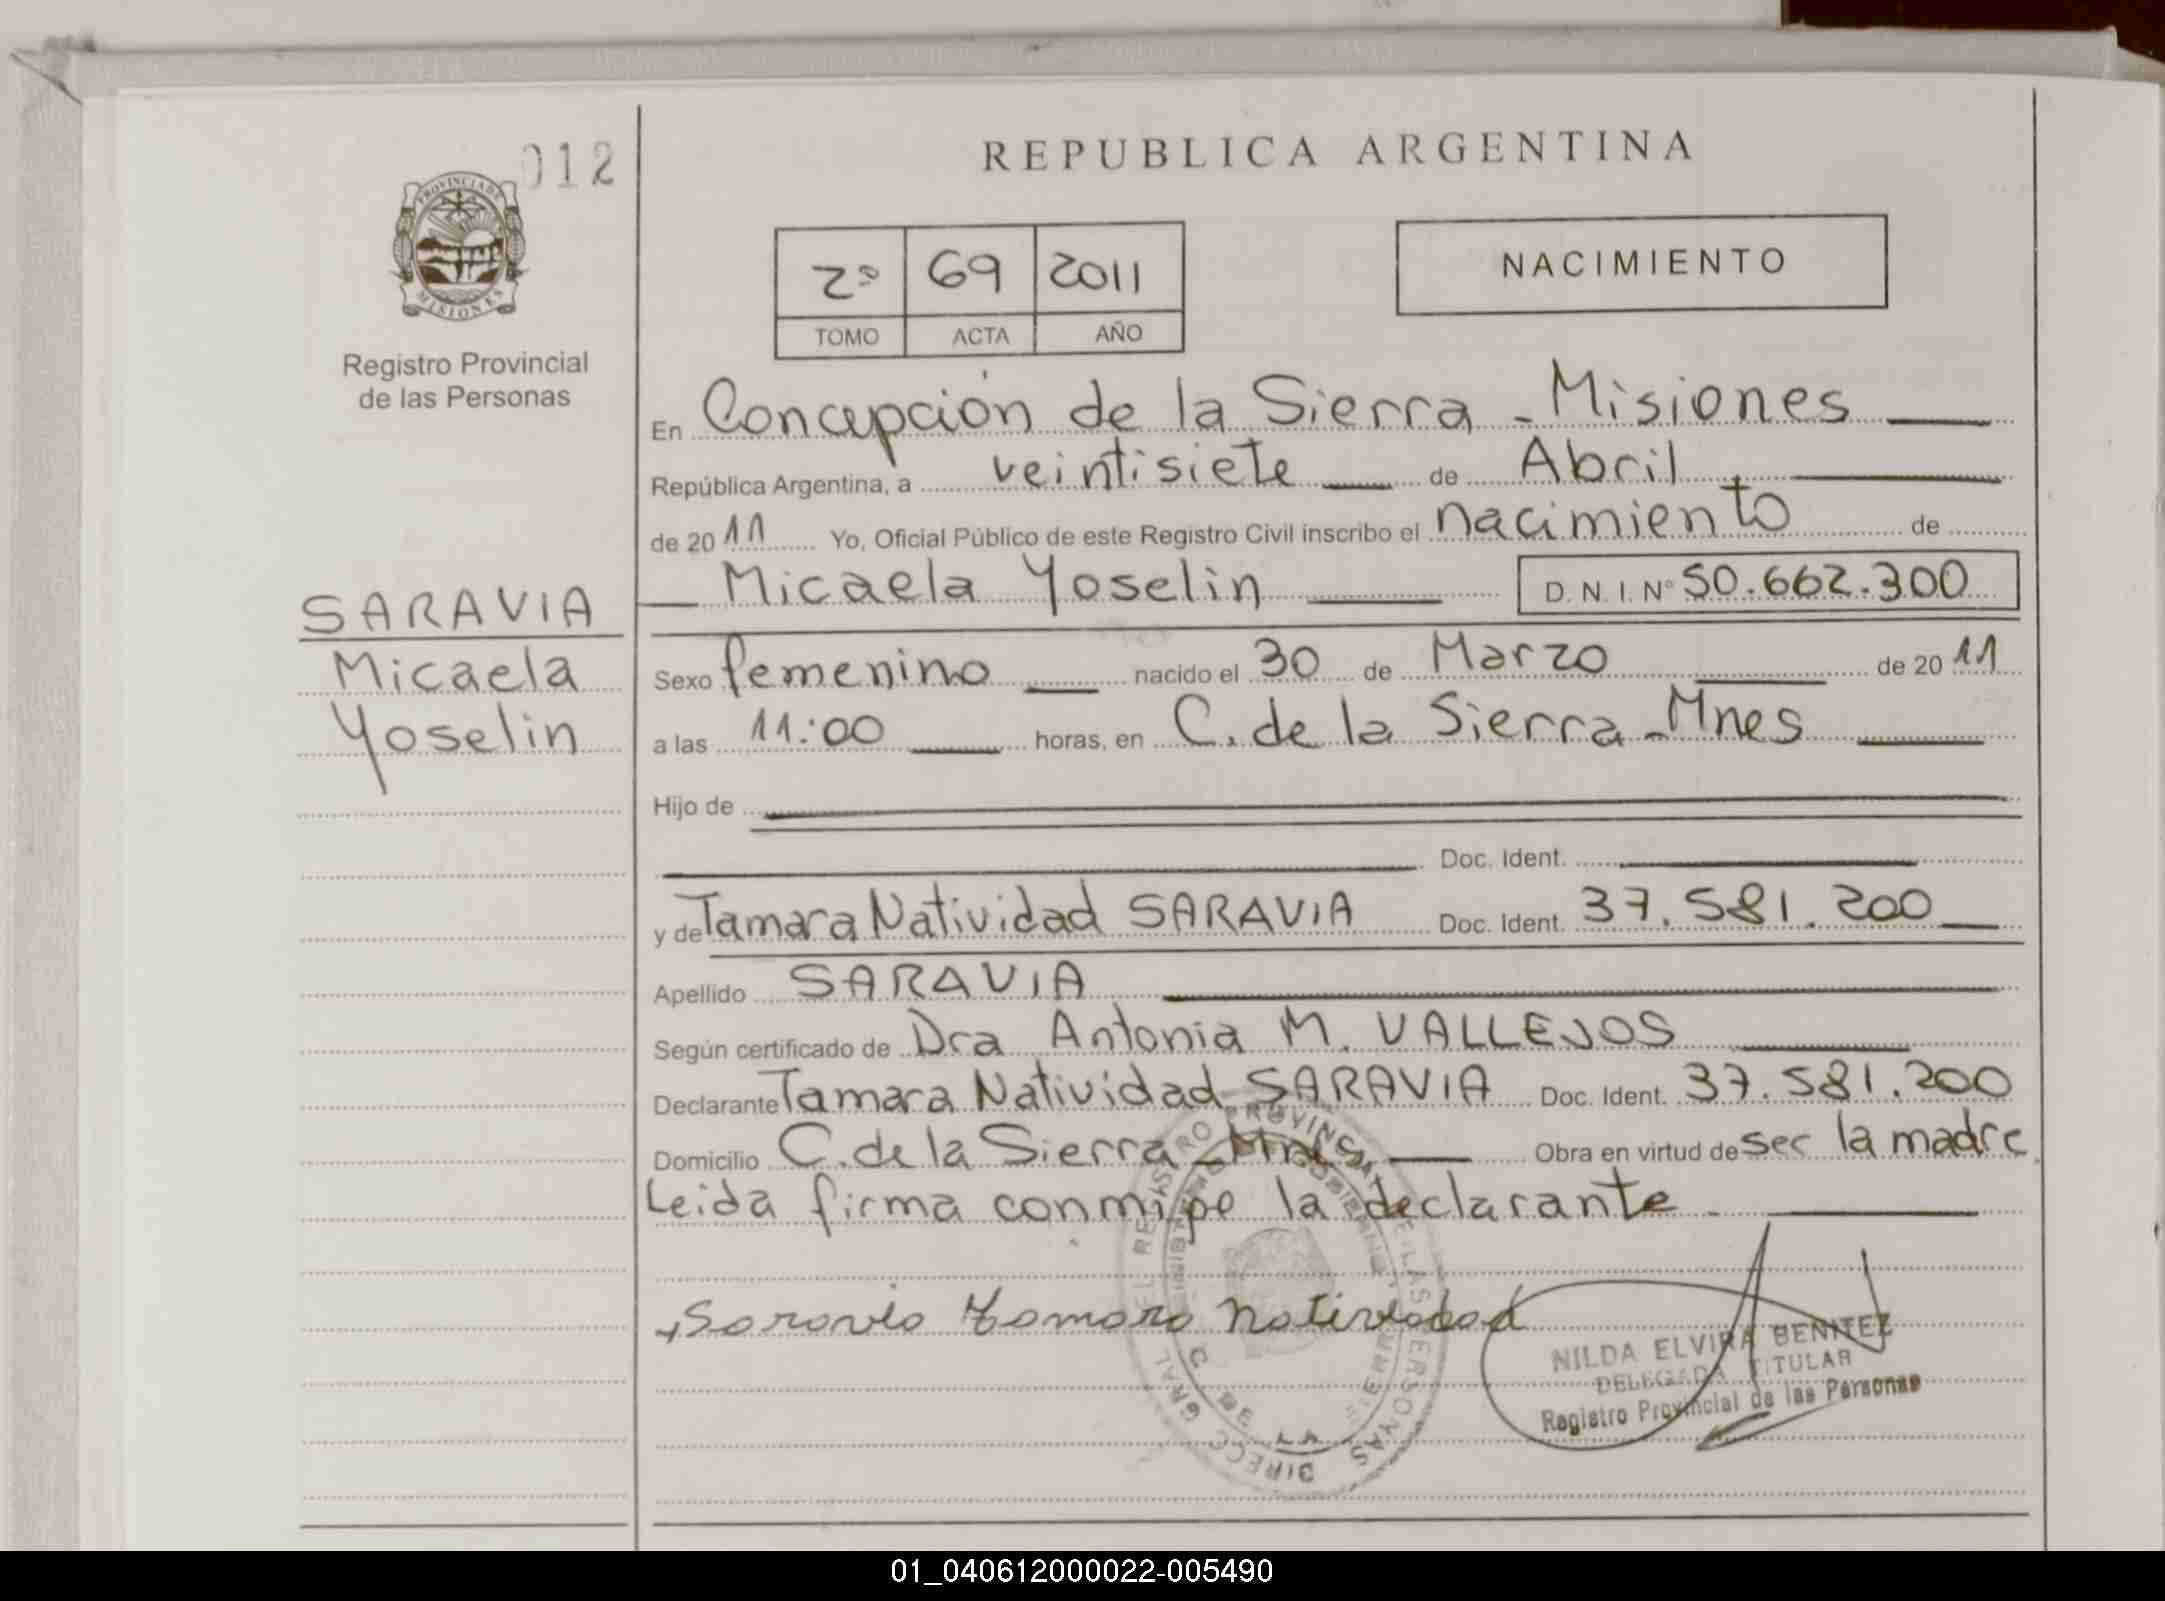 012
PROVINCIA DE
MISIONES
Registro Provincial
de las Personas
SARAVIA
Micaela
Yoselin
REPUBLICA ARGENTINA
2º 69 2011
TOMO ACTA AÑO
NACIMIENTO
En Concepción de la Sierra - Misiones
República Argentina, a veintisiete de Abril
de 2011 Yo, Oficial Público de este Registro Civil inscribo el nacimiento de
Micaela Yoselin D. N. I. Nº 50.662.300
Sexo femenino nacido el 30 de Marzo de 2011
a las 11:00 horas, en C. de la Sierra - Mnes
Hijo de
Doc. Ident.
y de Tamara Natividad SARAVIA Doc. Ident. 37.581.200
Apellido SARAVIA
Según certificado de Dra Antonia M. VALLEJOS
Declarante Tamara Natividad SARAVIA Doc. Ident. 37.581.200
Domicilio C. de la Sierra - Mnes Obra en virtud de ser la madre.
Leida firma conmigo la declarante
Saravia Tamara Natividad
NILDA ELVIRA BENITEZ
DELEGADA TITULAR
Registro Provincial de las Personas
01_040612000022-005490